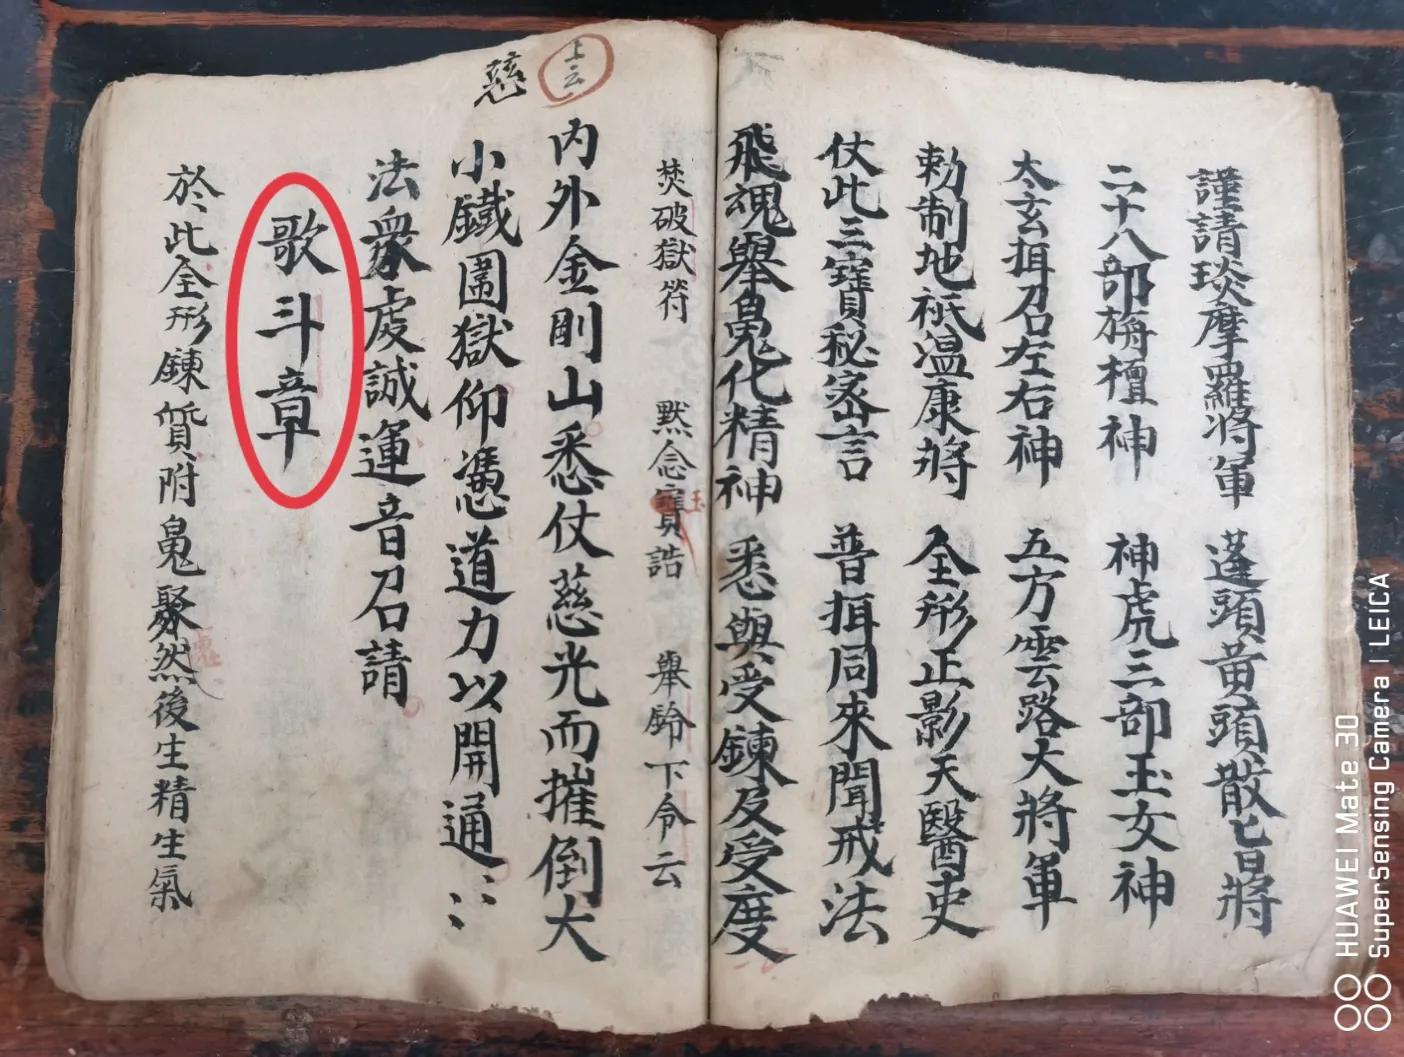 謹請琰摩羅將軍　蓬頭黃頭散㐫將
二十八部旃檀神　神虎三部玉女神
太玄揖召左右神　五方雲路大將軍
勅制地祇温康將　全形正影天醫吏
仗此三寶秘宻言　普揖同來聞戒法
飛魂舉鬼化精神　悉與受鍊及受度
焚破獄符　默念寶誥　舉鈴下令云
玉
上云
内外金剛山悉仗慈光而摧倒大
慈
小鐵圍獄仰憑道力以開通
法衆虔誠運音召請
歌斗章
於此全形鍊質附鬼聚然後生精生氣
HUAWEI Mate 30
SuperSensing Camera | LEICA